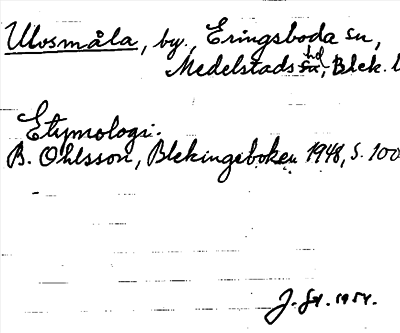 Ulvsmåla, by, Eringsboda sn,
Medelstads hd, Blek. l
Etymologi:
B. Ohlsson, Blekingeboken 1948, s. 100
J. 1954.